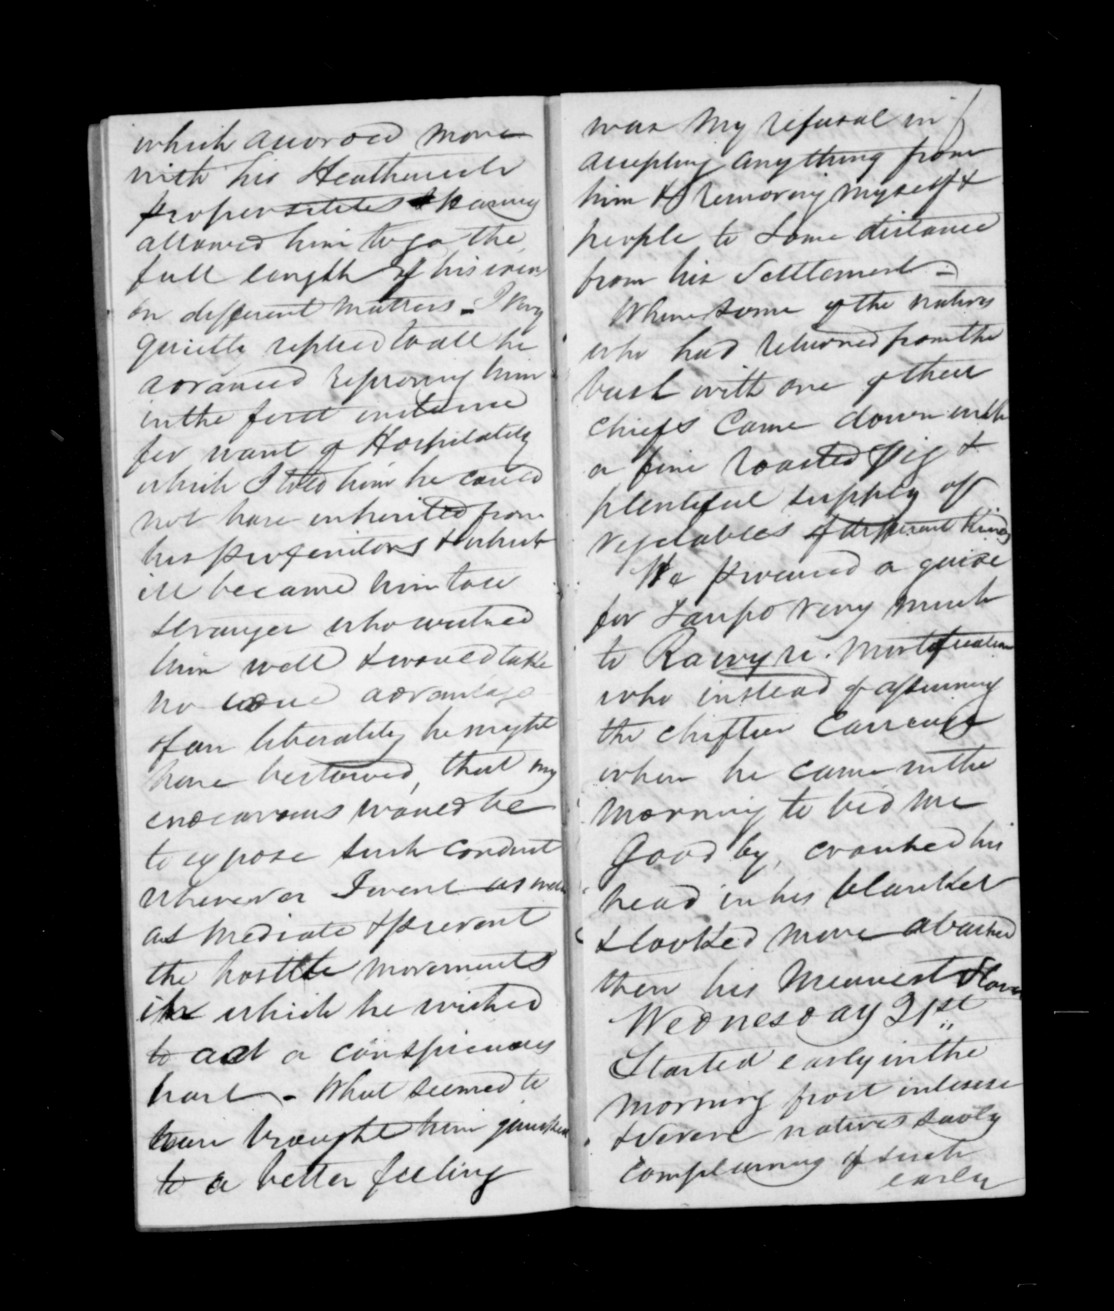 which accorded more
with his Heathenish
propensities & having
allowed him to go the
full length of his own
on different matters - I very
quietly replied to all he
advanced reproving him
in the first instance
for want of Hospitality
which I told him he could
not have inherited from
his progenitors & which
ill became him to a
stranger who wished
him well & would take
no advantage
of any liberality he might
have bestowed, that my
endeavours would be
to expose such conduct
wherever I went as well
as mediate & prevent
the hostile movements
in which he wished
to act a conspicuous
part - What seemed to
have brought him
to a better feeling
was my refusal in
accepting anything from
him & removing myself &
people to some distance
from his settlement -
When some of the natives
who had returned from the
bush with one of their
chiefs came down with
a fine roasted Pig &
plentiful supply of
vegetables of different kinds
We procured a guide
for Taupo very much
to mortification
who instead of assuming
the chiftien
when he came in the
morning to bid me
Good by, crouched his
head in his blanket
& looked more abashed
then his meanest slave
Wednesday 21st
Started early in the
morning frost intense
& severe natives sadly
complaining of such
early